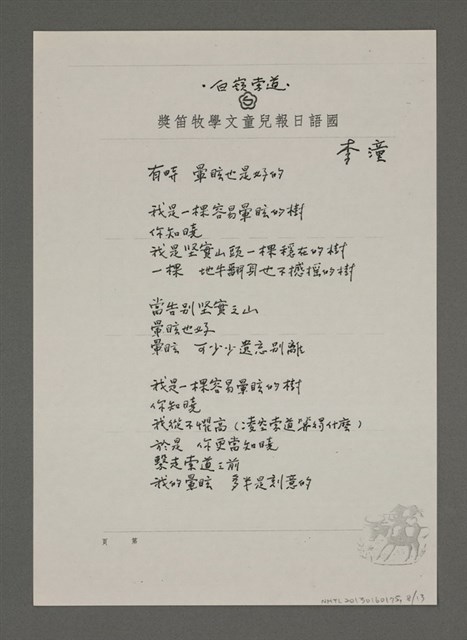 ·白嶺索道·
國語日報兒童文學牧笛獎
李潼
有時 暈眩也是好的
我是一棵容易暈眩的樹
你知曉
我是堅實山頭一棵穩在的樹
一棵 地牛翻身也不撼搖的樹
當告別堅實之山
暈眩也好
暈眩 可少少遺忘別離
我是一棵容易暈眩的樹
你知曉
我從不懼高（凌空索道算得什麼）
於是 你更當知曉
繫走索道之前
我的暈眩 多半是刻意的
第 頁
NMTL20130160175